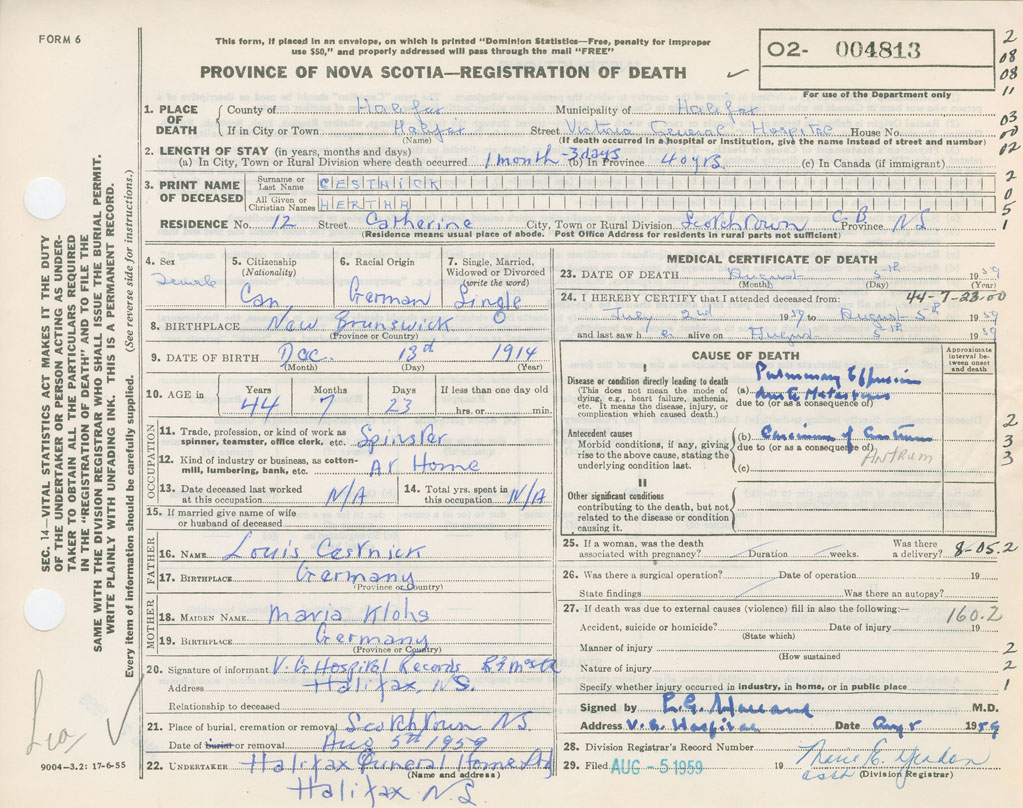 FORM 6
This form, if placed in an envelope, on which is printed "Dominion Statistics—Free, penalty for improper
use $50," and properly addressed will pass through the mail "FREE"
PROVINCE OF NOVA SCOTIA—REGISTRATION OF DEATH
02- 004813
For use of the Department only
2
08
08
11
03
00
02
2
0
5
1
SEC. 14—VITAL STATISTICS ACT MAKES IT THE DUTY
OF THE UNDERTAKER OR PERSON ACTING AS UNDER-
TAKER TO OBTAIN ALL THE PARTICULARS REQUIRED
IN THE "REGISTRATION OF DEATH" AND TO FILE THE
SAME WITH THE DIVISION REGISTRAR WHO SHALL ISSUE THE BURIAL PERMIT.
WRITE PLAINLY WITH UNFADING INK. THIS IS A PERMANENT RECORD.
Every item of information should be carefully supplied. (See reverse side for instructions.)
1. PLACE OF DEATH
County of Halifax Municipality of Halifax
If in City or Town Halifax Street Victoria General Hospital House No.
(Name) (If death occurred in a hospital or Institution, give the name instead of street and number)
2. LENGTH OF STAY (in years, months and days)
(a) In City, Town or Rural Division where death occurred 1 month - 3 days (b) In Province 40 yrs (c) In Canada (if immigrant)
3. PRINT NAME OF DECEASED
Surname or Last Name CESTNICK
All Given or Christian Names HERTHA
RESIDENCE No. 12 Street Catherine City, Town or Rural Division Scotchtown C.B. Province NS
(Residence means usual place of abode. Post Office Address for residents in rural parts not sufficient)
4. Sex Female
5. Citizenship (Nationality) Can
6. Racial Origin German
7. Single, Married, Widowed or Divorced (write the word) Single
8. BIRTHPLACE New Brunswick
(Province or Country)
9. DATE OF BIRTH Dec. 13th 1914
(Month) (Day) (Year)
10. AGE in Years 44 Months 7 Days 23 If less than one day old
hrs. or min.
OCCUPATION
11. Trade, profession, or kind of work as spinner, teamster, office clerk, etc. Spinster
12. Kind of industry or business, as cotton-mill, lumbering, bank, etc. At Home
13. Date deceased last worked at this occupation N/A
14. Total yrs. spent in this occupation N/A
15. If married give name of wife or husband of deceased
FATHER
16. NAME Louis Cestnick
17. BIRTHPLACE Germany
(Province or Country)
MOTHER
18. MAIDEN NAME Maria Klohs
19. BIRTHPLACE Germany
(Province or Country)
20. Signature of informant V.G. Hospital Records
Address Halifax, N.S.
Relationship to deceased
21. Place of burial, cremation or removal Scotchtown NS.
Date of burial or removal Aug 5th 1959
22. UNDERTAKER Halifax Funeral Home Ltd
(Name and address)
Halifax NS
9004—3.2: 17-6-55
MEDICAL CERTIFICATE OF DEATH
23. DATE OF DEATH August 5th 1959
(Month) (Day) (Year)
44-7-23-00
24. I HEREBY CERTIFY that I attended deceased from:
July 2nd 1959 to August 5th 1959
and last saw h e alive on August 5th 1959
CAUSE OF DEATH
Approximate interval between onset and death
I
Disease or condition directly leading to death
(This does not mean the mode of dying, e.g., heart failure, asthenia, etc. It means the disease, injury, or complication which caused death.)
(a) Pulmonary Effusion
due to Metastases
due to (or as a consequence of)
Antecedent causes
Morbid conditions, if any, giving rise to the above cause, stating the underlying condition last.
(b) Carcinoma of Antrum
due to (or as a consequence of)
Antrum
(c)
2
3
3
II
Other significant conditions
contributing to the death, but not related to the disease or condition causing it.
25. If a woman, was the death associated with pregnancy? Duration weeks. Was there a delivery? 8-05.2
26. Was there a surgical operation? Date of operation 19
State findings Was there an autopsy?
27. If death was due to external causes (violence) fill in also the following:—
160.2
Accident, suicide or homicide? Date of injury 19
(State which)
Manner of injury 2
(How sustained
Nature of injury 2
Specify whether injury occurred in industry, in home, or in public place 1
Signed by M.D.
Address V.G. Hospital Date Aug 5 1959
28. Division Registrar's Record Number
29. Filed AUG -5 1959 19
(Division Registrar)